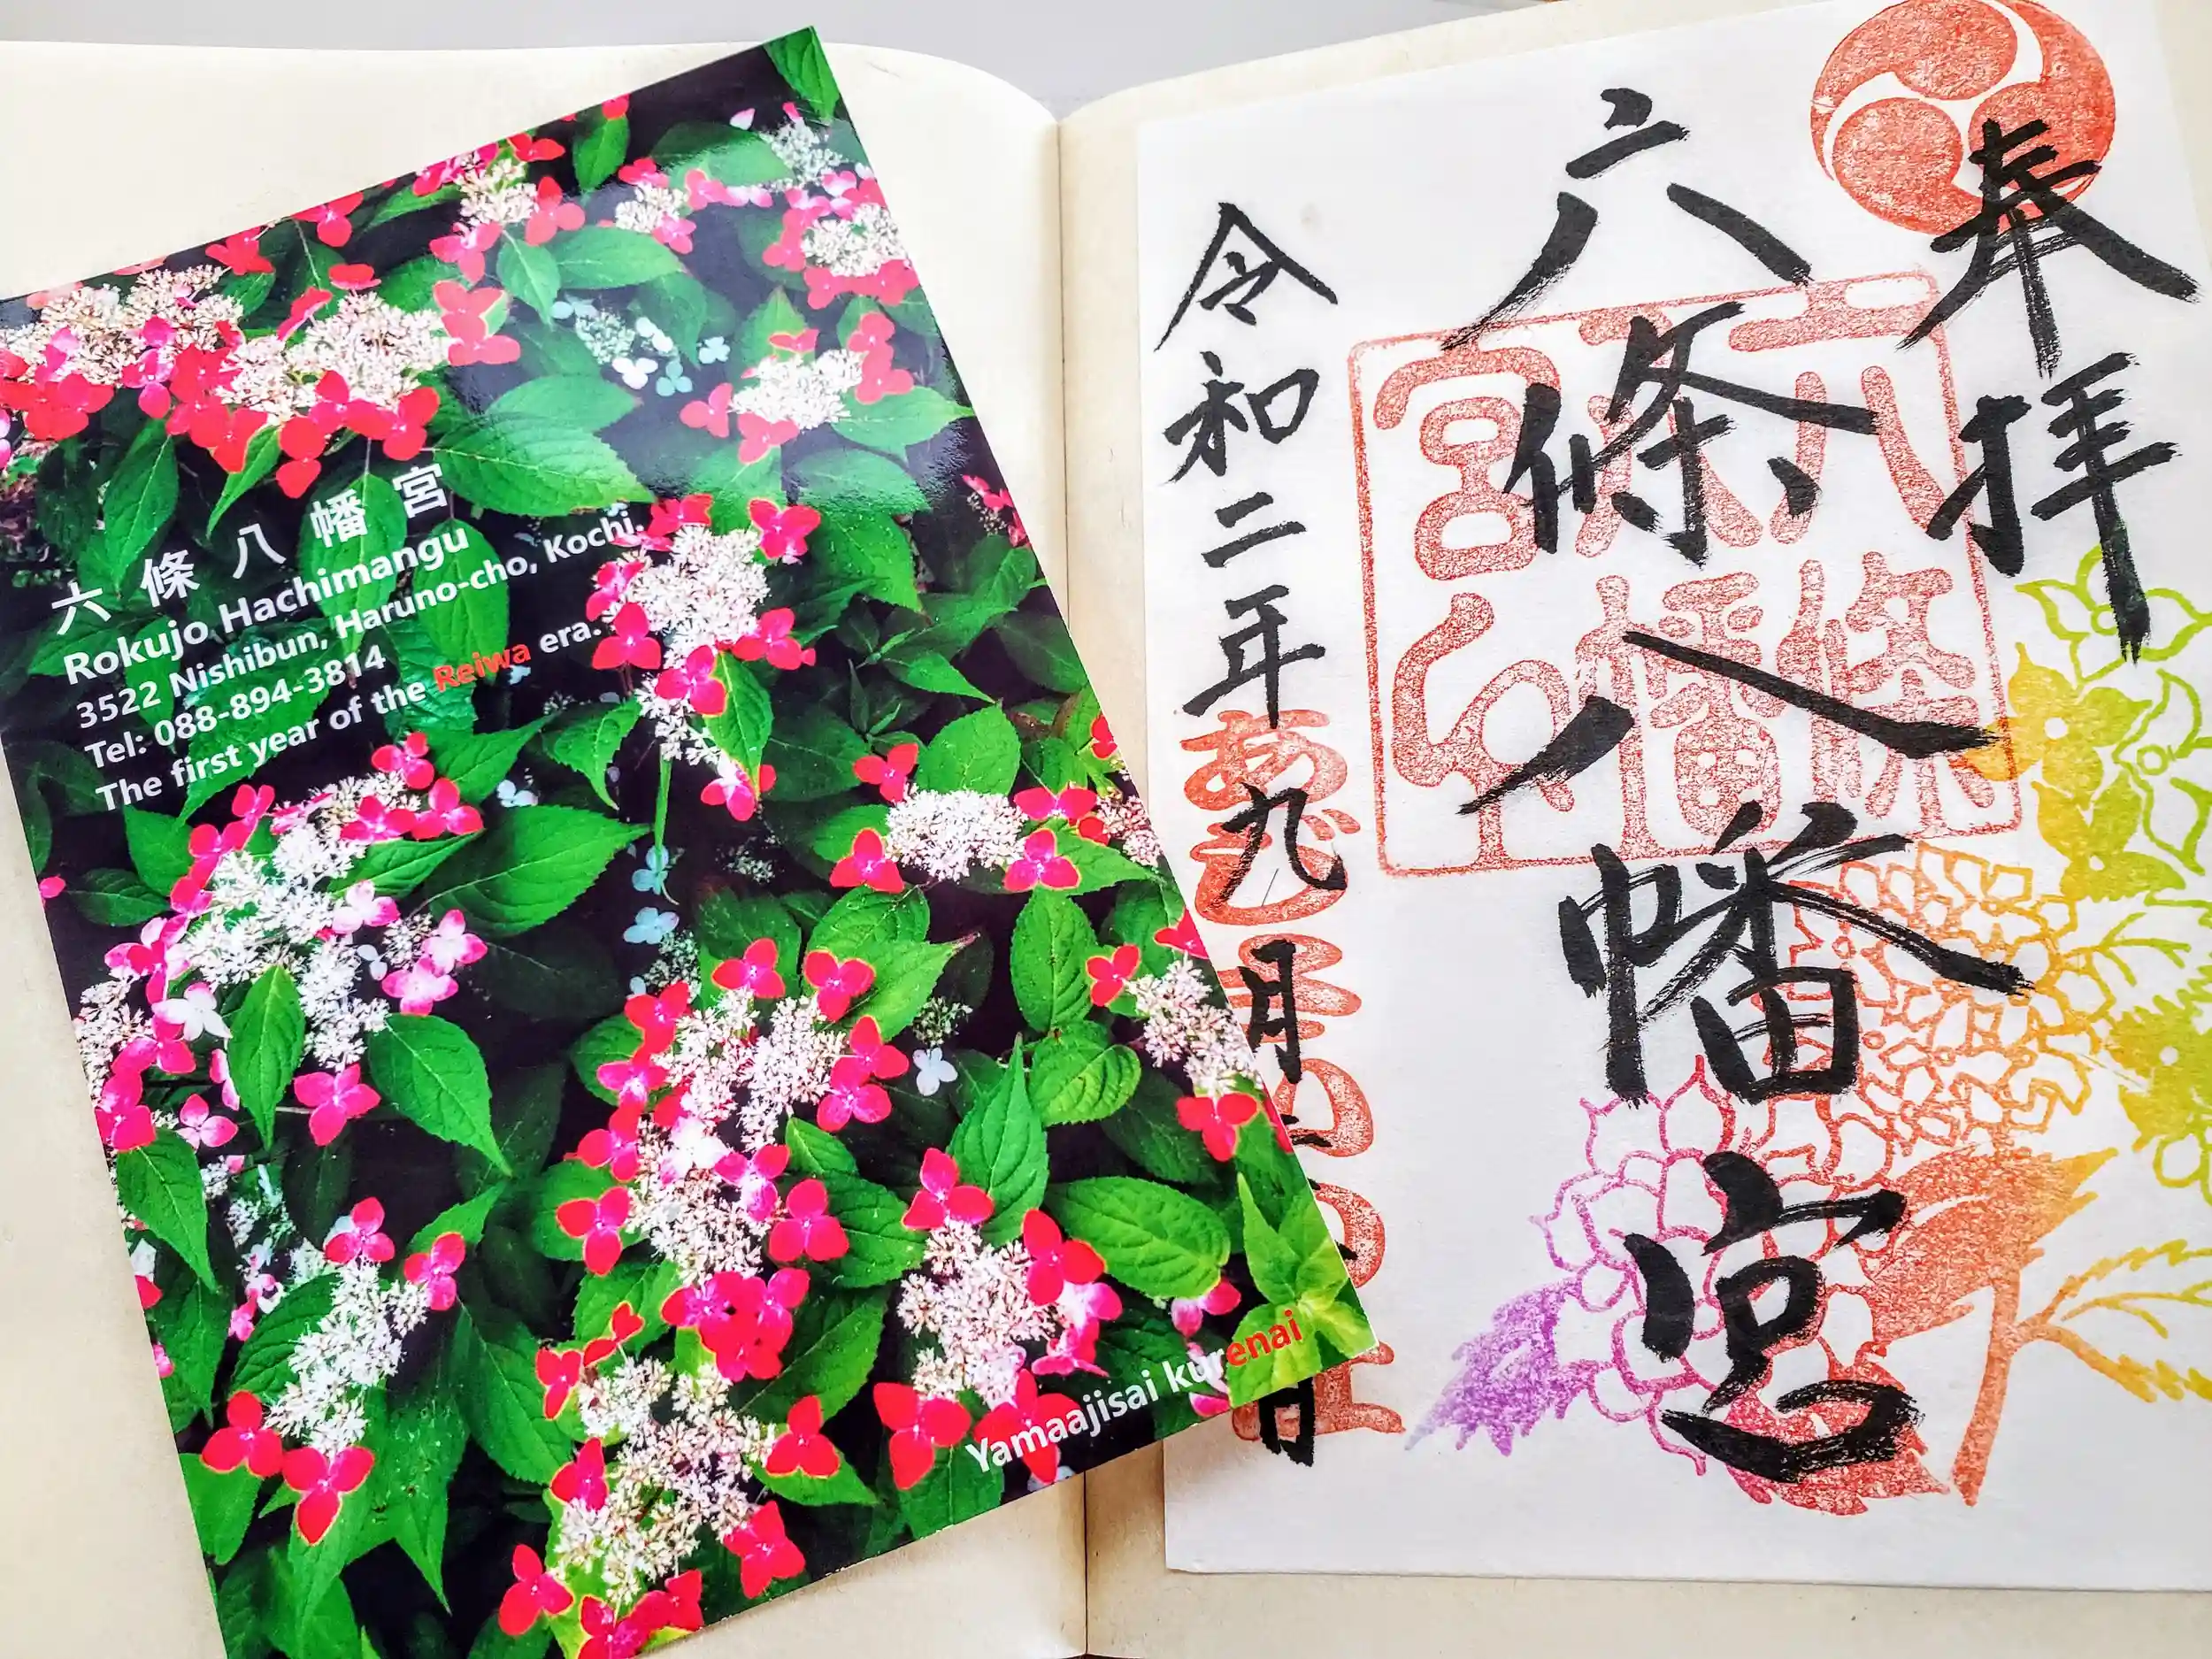 六條八幡宮
Rokujo Hachimangu
3522 Nishibun, Haruno-cho, Kochi.
Tel: 088-894-3814
The first year of the Reiwa era.
Yamaajisai kurenai
奉拝
六條八幡宮
六條八幡宮
令和二年九月
日